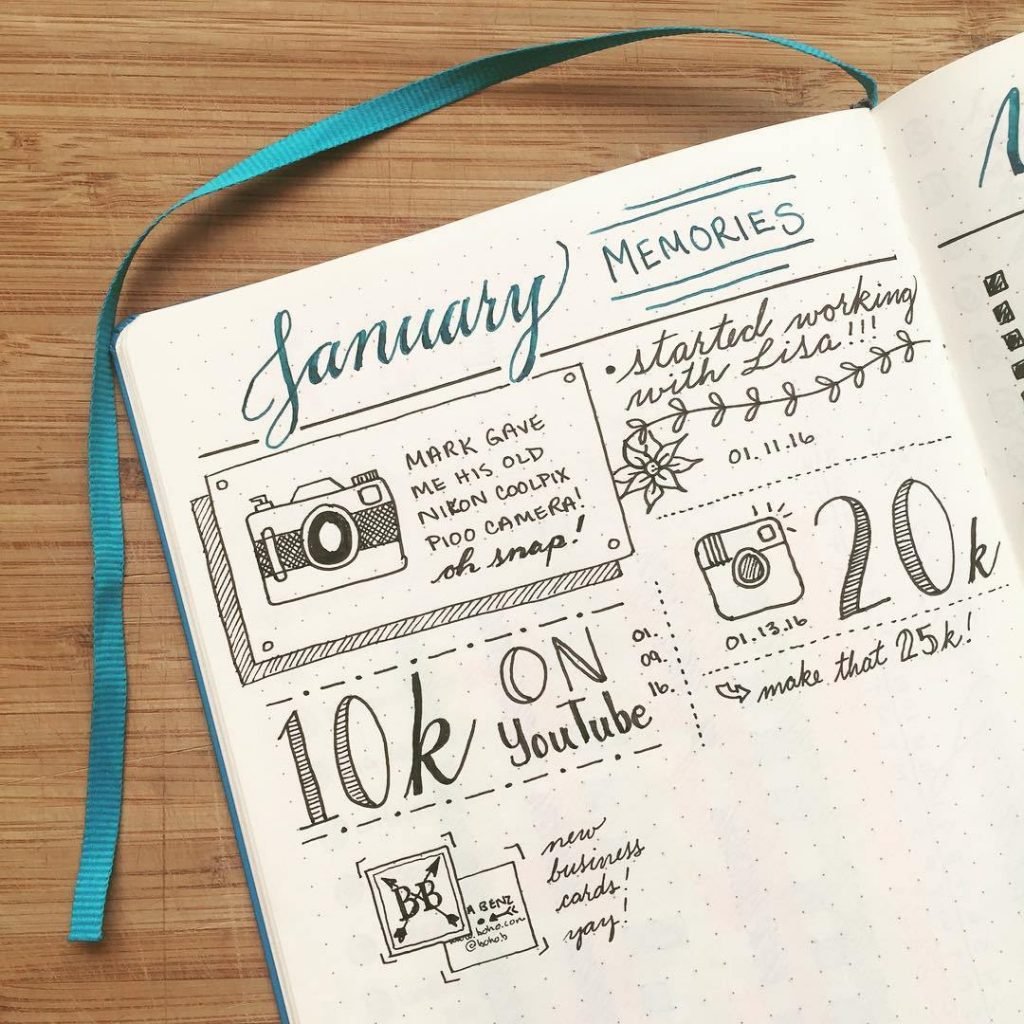 January
MEMORIES
MARK GAVE
ME HIS OLD
NIKON COOLPIX
P100 CAMERA!
oh snap!
• started working
with Lisa!!!
01.11.16
20k
01.13.16
make that 25k!
10k
ON
YouTube
01.
09.
16.
B B
A BENZ
www.boho.com
@boho.b
new
business
cards!
yay!